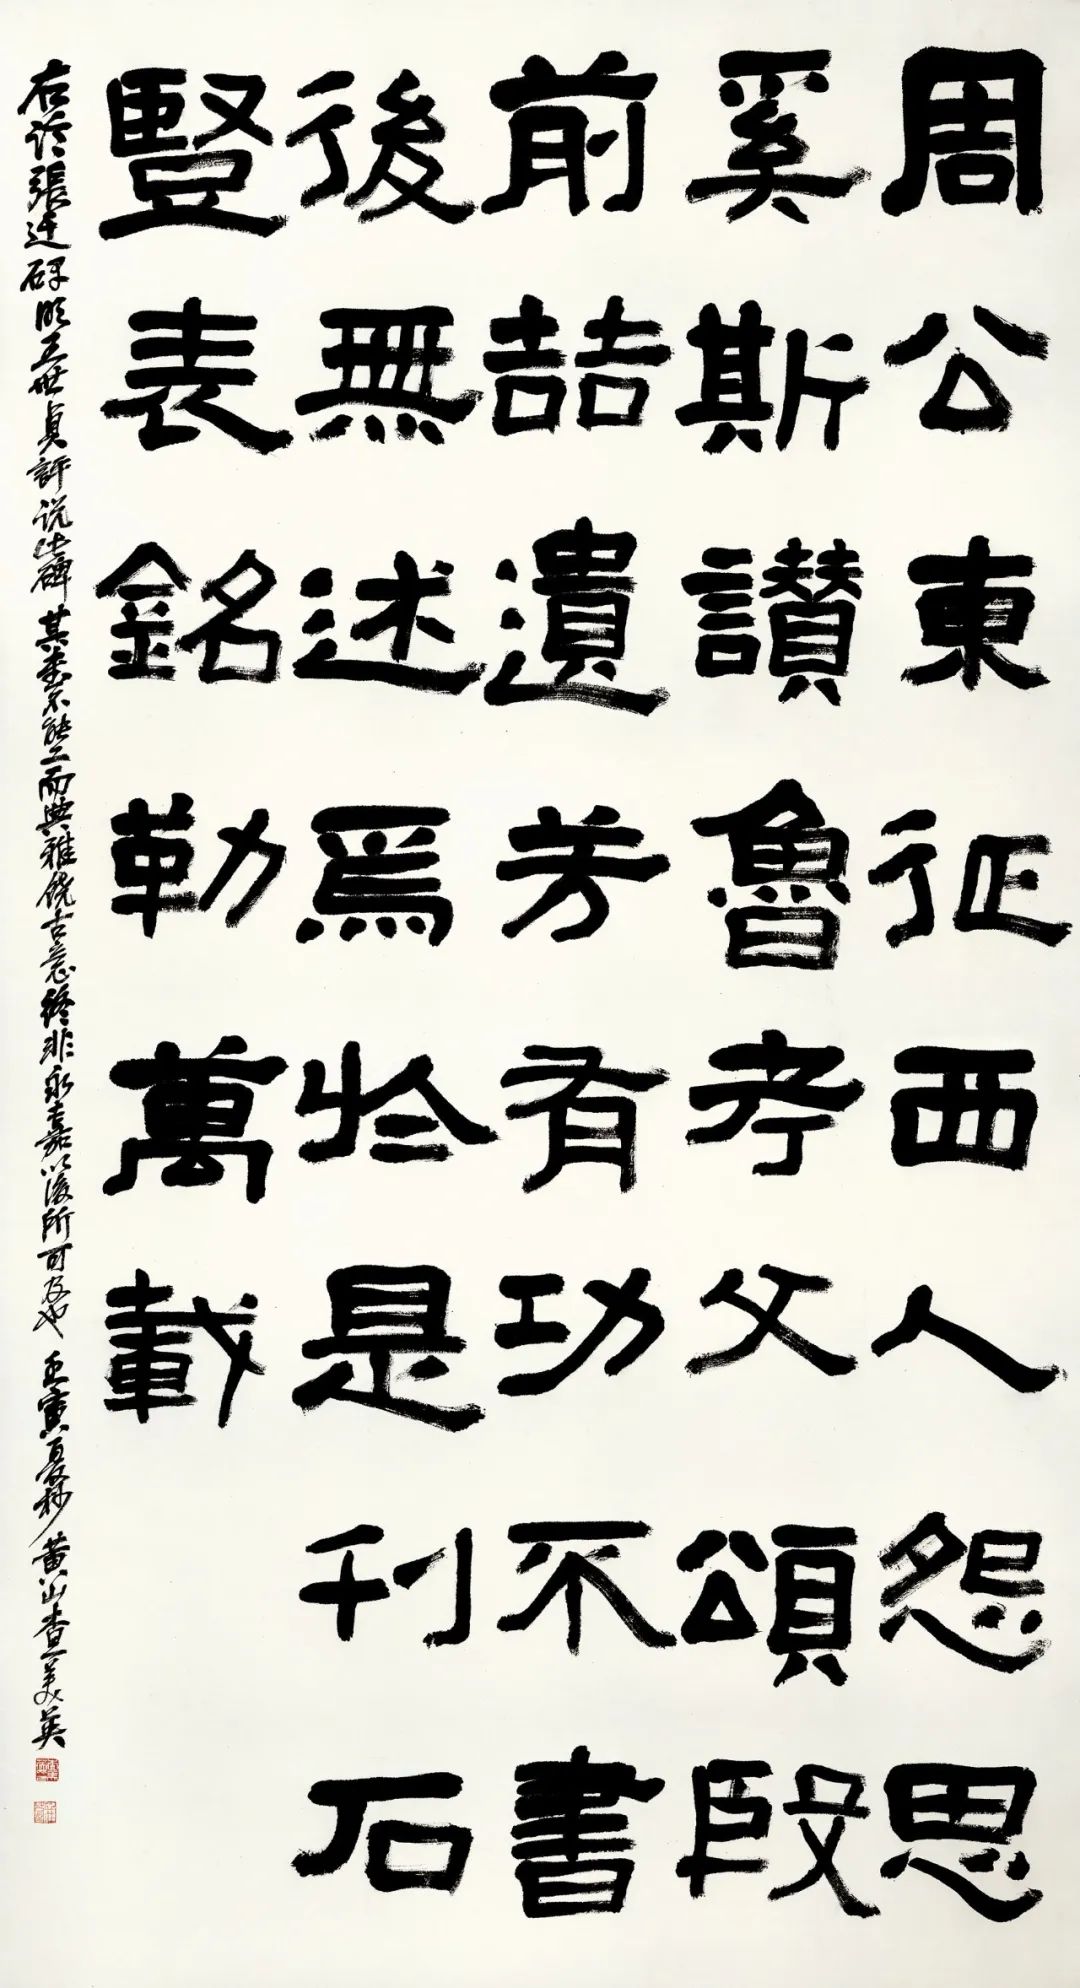 周公東征西人怨思
奚斯讃魯考父頌段
前喆遺芳有功不書
後無述焉於是刊石
豎表銘勒萬載
右臨張迁碑明王世貞評説此碑其書不能工而典雅饒古意終非永嘉以後所可及也壬寅夏杪黄山查美英